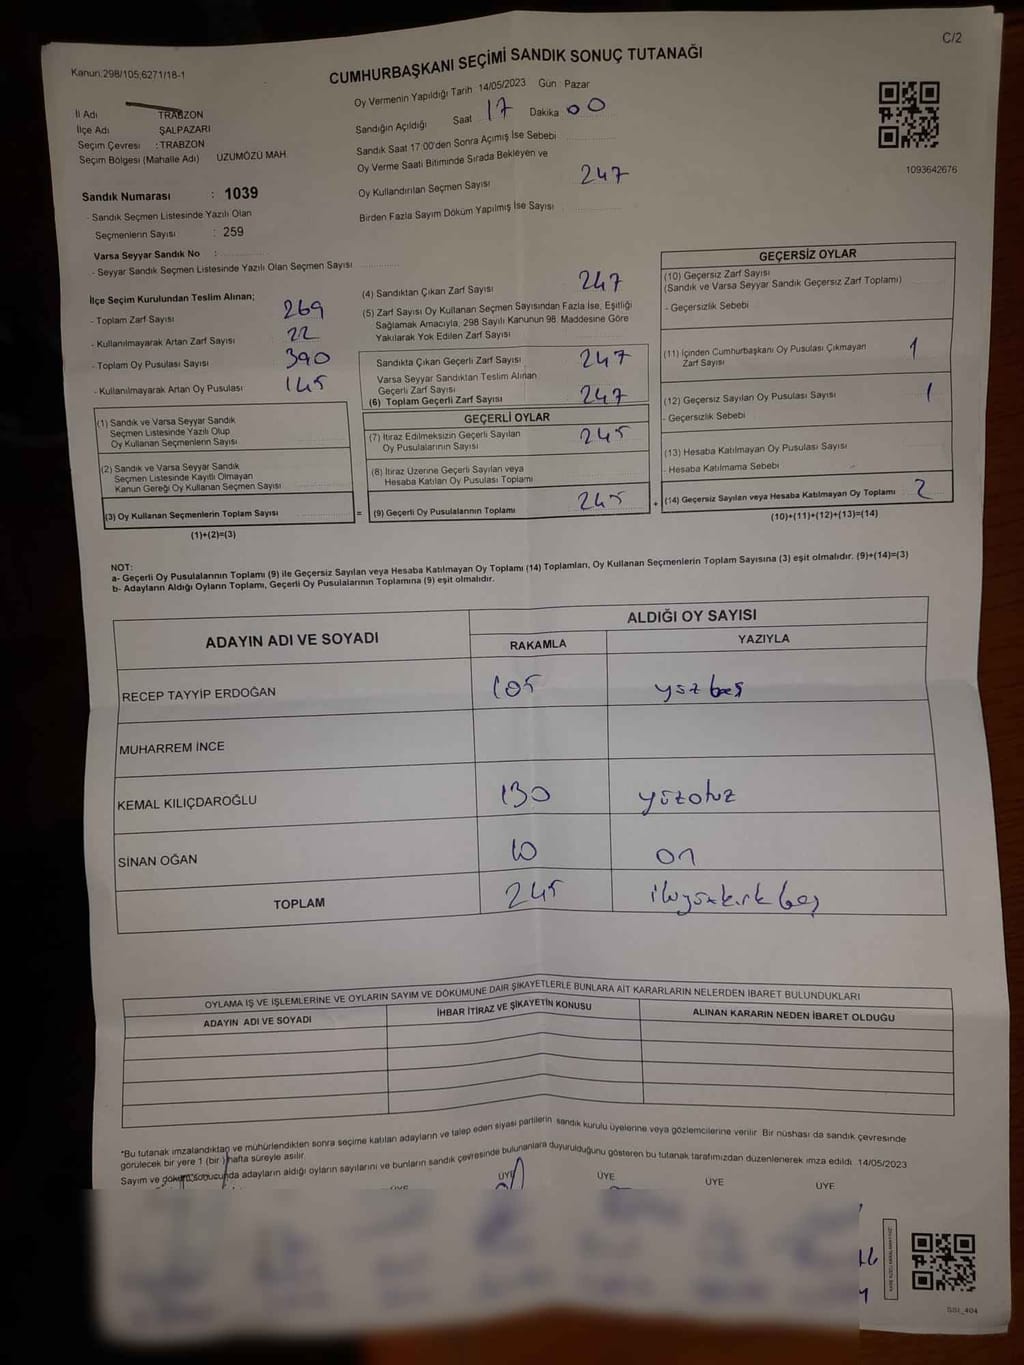 C/2
Kanun:298/105;6271/18-1
CUMHURBAŞKANI SEÇİMİ SANDIK SONUÇ TUTANAĞI
İl Adı TRABZON
İlçe Adı ŞALPAZARI
Seçim Çevresi : TRABZON
Seçim Bölgesi (Mahalle Adı) ÜZÜMÖZÜ MAH.
Oy Vermenin Yapıldığı Tarih 14/05/2023 Gün Pazar
Sandığın Açıldığı Saat 17 Dakika 00
Sandık Saat 17:00'den Sonra Açımış İse Sebebi
Oy Verme Saati Bitiminde Sırada Bekleyen ve
Oy Kullandırılan Seçmen Sayısı 247
Birden Fazla Sayım Döküm Yapılmış İse Sayısı
1093642676
Sandık Numarası : 1039
- Sandık Seçmen Listesinde Yazılı Olan
Seçmenlerin Sayısı : 259
Varsa Seyyar Sandık No :
- Seyyar Sandık Seçmen Listesinde Yazılı Olan Seçmen Sayısı
İlçe Seçim Kurulundan Teslim Alınan;
- Toplam Zarf Sayısı 269
- Kullanılmayarak Artan Zarf Sayısı 22
- Toplam Oy Pusulası Sayısı 390
- Kullanılmayarak Artan Oy Pusulası 145
(1) Sandık ve Varsa Seyyar Sandık
Seçmen Listesinde Yazılı Olup
Oy Kullanan Seçmenlerin Sayısı
(2) Sandık ve Varsa Seyyar Sandık
Seçmen Listesinde Kayıtlı Olmayan
Kanun Gereği Oy Kullanan Seçmen Sayısı
(3) Oy Kullanan Seçmenlerin Toplam Sayısı =
(1)+(2)=(3)
(4) Sandıktan Çıkan Zarf Sayısı 247
(5) Zarf Sayısı Oy Kullanan Seçmen Sayısından Fazla İse, Eşitliği
Sağlamak Amacıyla, 298 Sayılı Kanunun 98. Maddesine Göre
Yakılarak Yok Edilen Zarf Sayısı
Sandıkta Çıkan Geçerli Zarf Sayısı 247
Varsa Seyyar Sandıktan Teslim Alınan
Geçerli Zarf Sayısı
(6) Toplam Geçerli Zarf Sayısı 247
GEÇERLİ OYLAR
(7) İtiraz Edilmeksizin Geçerli Sayılan
Oy Pusulalarının Sayısı 245
(8) İtiraz Üzerine Geçerli Sayılan veya
Hesaba Katılan Oy Pusulası Toplamı
(9) Geçerli Oy Pusulalarının Toplamı 245 +
GEÇERSİZ OYLAR
(10) Geçersiz Zarf Sayısı
(Sandık ve Varsa Seyyar Sandık Geçersiz Zarf Toplamı)
- Geçersizlik Sebebi
(11) İçinden Cumhurbaşkanı Oy Pusulası Çıkmayan
Zarf Sayısı 1
(12) Geçersiz Sayılan Oy Pusulası Sayısı 1
- Geçersizlik Sebebi
(13) Hesaba Katılmayan Oy Pusulası Sayısı
- Hesaba Katılmama Sebebi
(14) Geçersiz Sayılan veya Hesaba Katılmayan Oy Toplamı 2
(10)+(11)+(12)+(13)=(14)
NOT:
a- Geçerli Oy Pusulalarının Toplamı (9) ile Geçersiz Sayılan veya Hesaba Katılmayan Oy Toplamı (14) Toplamları, Oy Kullanan Seçmenlerin Toplam Sayısına (3) eşit olmalıdır. (9)+(14)=(3)
b- Adayların Aldığı Oyların Toplamı, Geçerli Oy Pusulalarının Toplamına (9) eşit olmalıdır.
ADAYIN ADI VE SOYADI ALDIĞI OY SAYISI
RAKAMLA YAZIYLA
RECEP TAYYİP ERDOĞAN 105 yüz beş
MUHARREM İNCE
KEMAL KILIÇDAROĞLU 130 yüzotuz
SİNAN OĞAN 10 on
TOPLAM 245 ikiyüzkırk beş
OYLAMA İŞ VE İŞLEMLERİNE VE OYLARIN SAYIM VE DÖKÜMÜNE DAİR ŞİKAYETLERLE BUNLARA AİT KARARLARIN NELERDEN İBARET BULUNDUKLARI
ADAYIN ADI VE SOYADI İHBAR İTİRAZ VE ŞİKAYETİN KONUSU ALINAN KARARIN NEDEN İBARET OLDUĞU
*Bu tutanak imzalandıktan ve mühürlendikten sonra seçime katılan adayların ve talep eden siyasi partilerin sandık kurulu üyelerine veya gözlemcilerine verilir. Bir nüshası da sandık çevresinde
görülecek bir yere 1 (bir) hafta süreyle asılır.
Sayım ve döküm sonucunda adayların aldığı oyların sayılarını ve bunların sandık çevresinde bulunanlara duyurulduğunu gösteren bu tutanak tarafımızdan düzenlenerek imza edildi. 14/05/2023
ÜYE ÜYE ÜYE ÜYE ÜYE
SSI_404